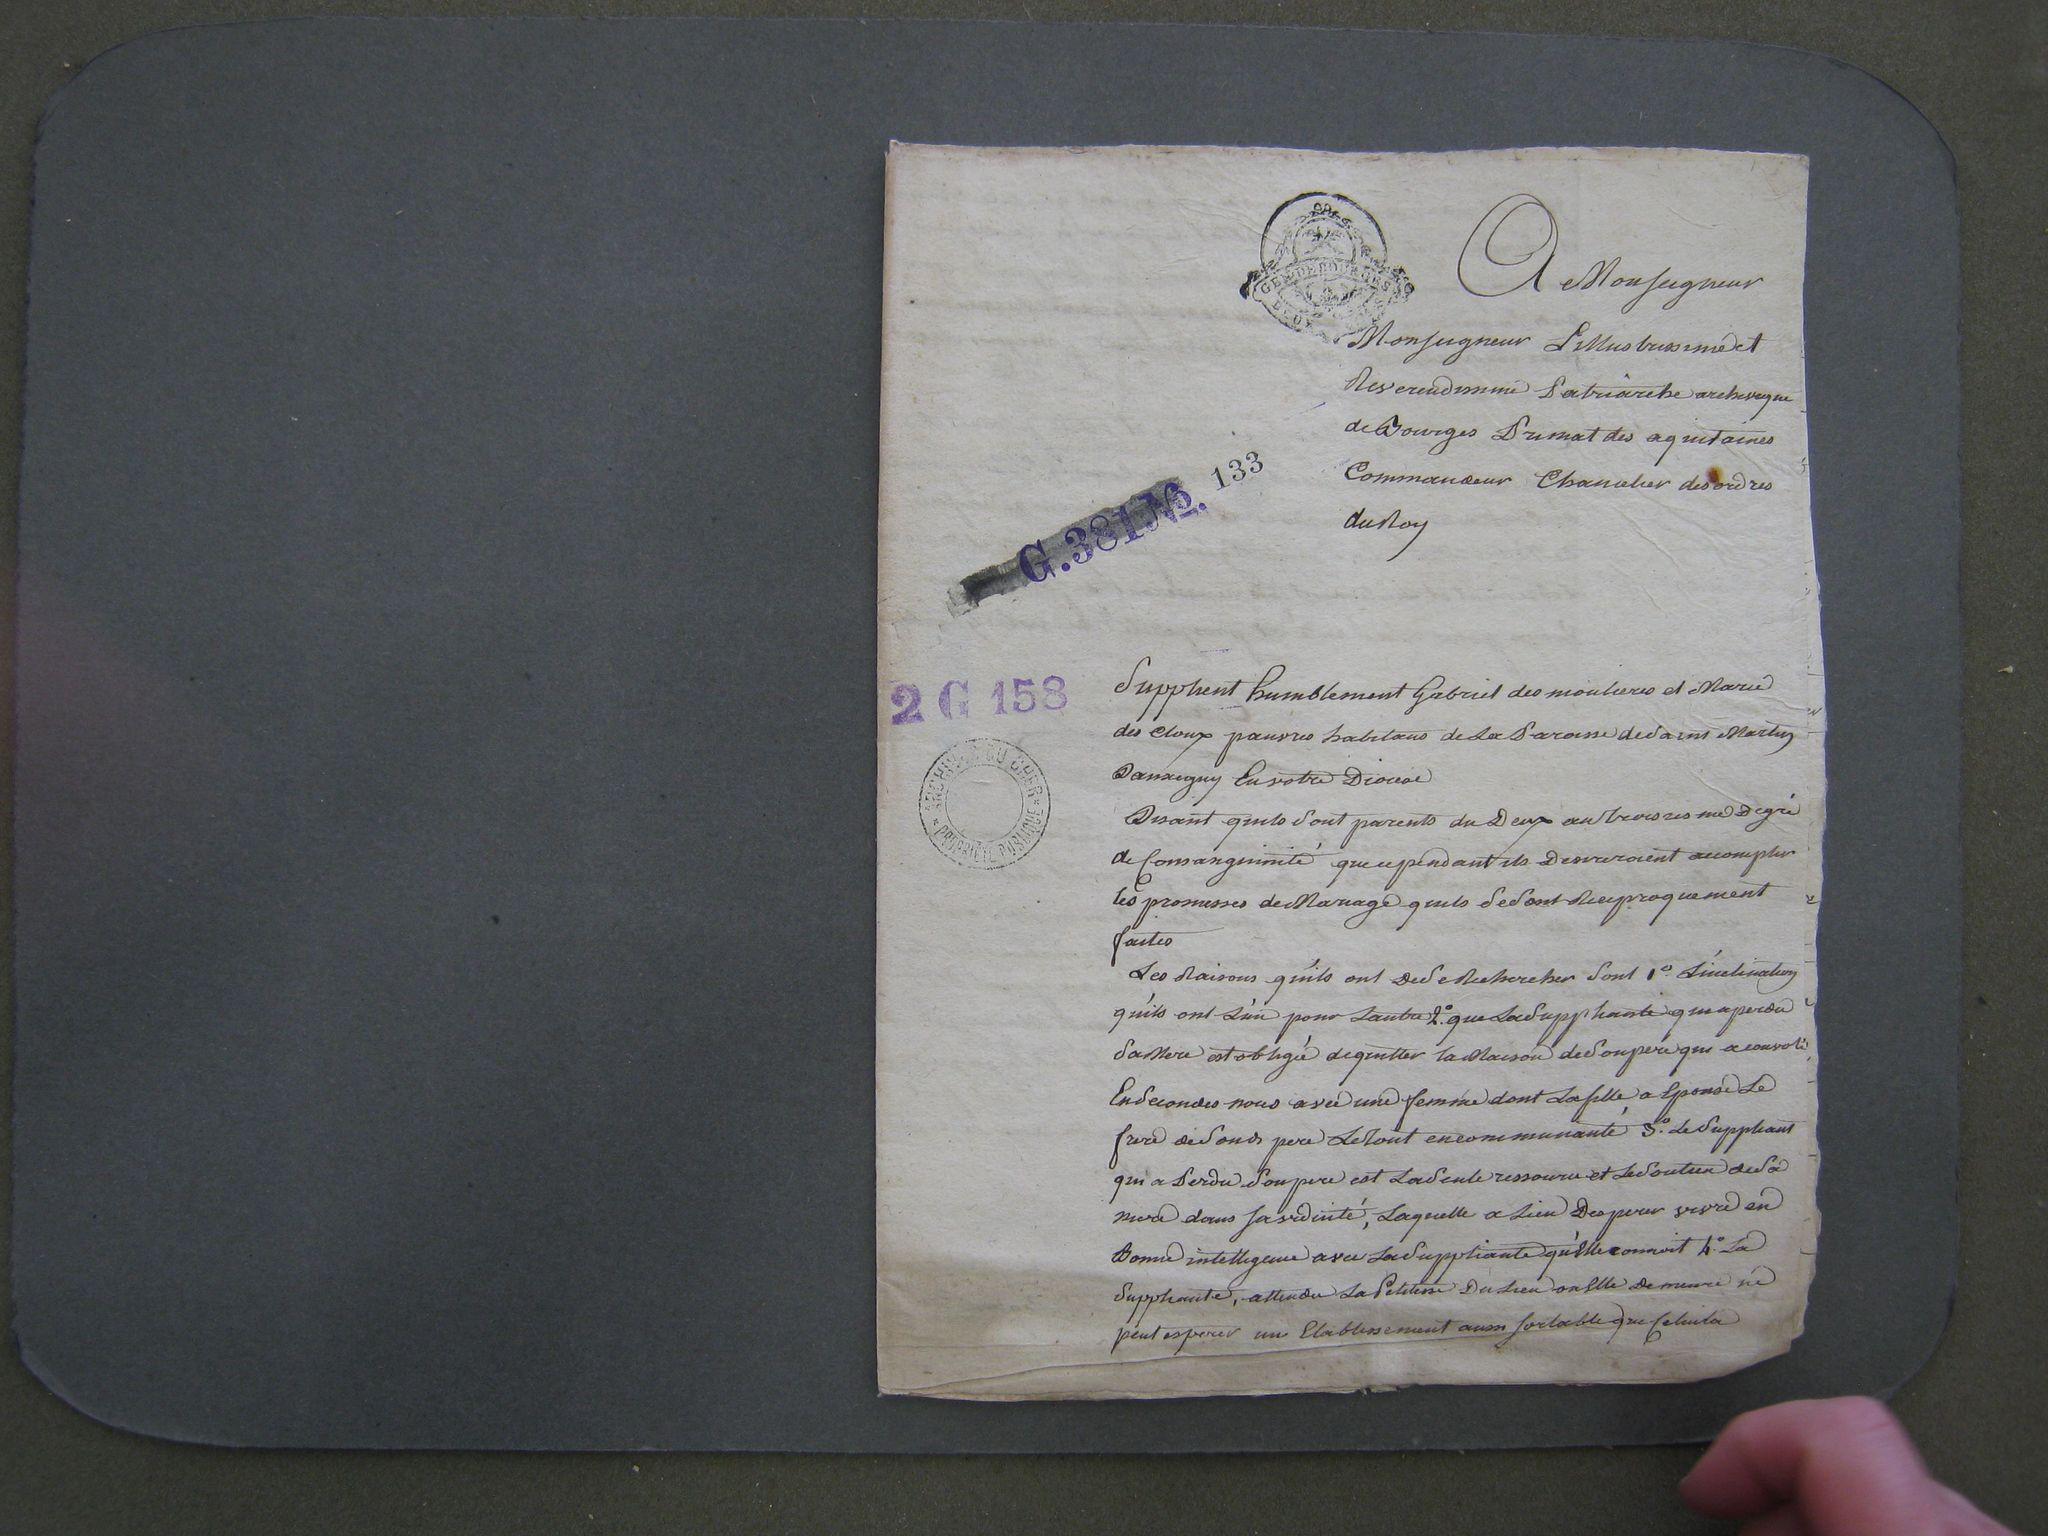 GEN. DE BOURGES
A Monseigneur
Monseigneur L'illustrissime et
Reverendissime Patriarche archeveque
de Bourges Primat des aquitaines
Commandeur Chancelier des ordres
du Roy
G.381 No. 133
2 G 158
ARCHIVES DU CHER
PROPRIÉTÉ PUBLIQUE
Supplient humblement Gabriel des moulieres et Marie
des Cloux pauvres habitans de La Paroisse de Saint Martin
Dauxigny En votre Diocese
Disant quils sont parents du Deux au troisiesme Degré
de Consanguinité que cependant ils Desireroient accomplir
les promesses de Mariage quils se sont Reciproquement
faites
Les Raisons qu'ils ont De se Rechercher sont 1.º L'inclination
qu'ils ont L'un pour Lautre 2.º que La Suppliante qui a perdu
Sa Mere est obligée de quitter la Maison de Son pere qui a convolé
En Secondes noces avec une femme dont La fille a Epousé Le
frere de Sond. pere Le Tout en communauté 3.º Le Suppliant
qui a Perdu Son pere est La Seule ressource et Le Soutien de Sa
mere dans Sa viduité, Laquelle a Lieu Desperer vivre en
Bonne intelligence avec La Suppliante qu'Elle connoit 4.º La
Suppliante, attendu La Petitesse Du Lieu ou Elle Demeure né
peut esperer un Etablissement aussi Sortable que Celui la